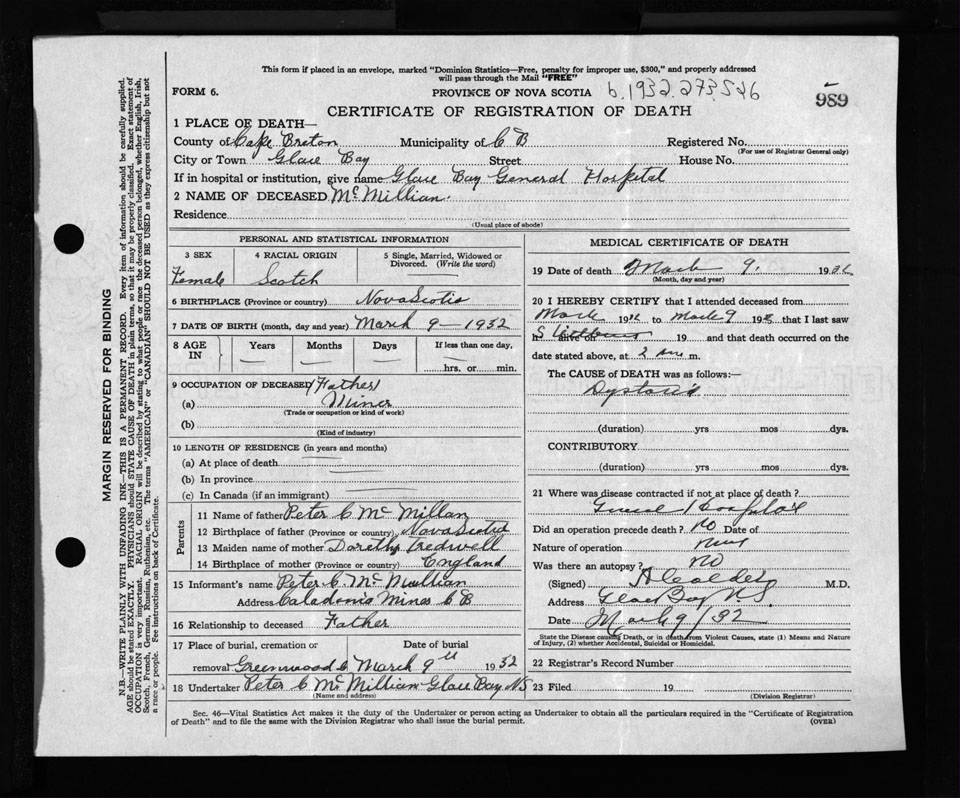 This form if placed in an envelope, marked "Dominion Statistics—Free, penalty for improper use, $300," and properly addressed
will pass through the Mail "FREE"
FORM 6.
PROVINCE OF NOVA SCOTIA b.1932.273526
989
CERTIFICATE OF REGISTRATION OF DEATH
1 PLACE OF DEATH—
County of Cape Breton Municipality of C B Registered No.
(For use of Registrar General only)
City or Town Glace Bay Street House No.
If in hospital or institution, give name Glace Bay General Hospital
2 NAME OF DECEASED McMillian.
Residence
(Usual place of abode)
PERSONAL AND STATISTICAL INFORMATION
3 SEX 4 RACIAL ORIGIN 5 Single, Married, Widowed or Divorced. (Write the word)
Female Scotch
6 BIRTHPLACE (Province or country) Nova Scotia
7 DATE OF BIRTH (month, day and year) March 9—1932
8 AGE IN Years Months Days If less than one day,
hrs. or min.
9 OCCUPATION OF DECEASED (Father)
(a) Miner
(Trade or occupation or kind of work)
(b)
(Kind of industry)
10 LENGTH OF RESIDENCE (in years and months)
(a) At place of death
(b) In province
(c) In Canada (if an immigrant)
Parents
11 Name of father Peter C McMillan
12 Birthplace of father (Province or country) Nova Scotia
13 Maiden name of mother Dorethy Tredwell
14 Birthplace of mother (Province or country) England
15 Informant's name Peter C. McMullian
Address Caladonia Mines C B
16 Relationship to deceased Father
17 Place of burial, cremation or Date of burial
removal Greenwood C March 9th 1932
18 Undertaker Peter C McMillian Glace Bay NS
(Name and address)
MEDICAL CERTIFICATE OF DEATH
19 Date of death March 9. 1932
(Month, day and year)
20 I HEREBY CERTIFY that I attended deceased from
March 1932 to March 9 193 that I last saw
h alive on 19 and that death occurred on the
date stated above, at 2 am m.
The CAUSE of DEATH was as follows:—
Dystocia
(duration) yrs mos dys.
CONTRIBUTORY
(duration) yrs mos dys.
21 Where was disease contracted if not at place of death?
General Hospital
Did an operation precede death? no Date of
Nature of operation
Was there an autopsy? no
(Signed) M.D.
Address Glace Bay N.S.
Date March 9/32
State the Disease causing Death, or in death from Violent Causes, state (1) Means and Nature
of Injury, (2) whether Accidental, Suicidal or Homicidal.
22 Registrar's Record Number
23 Filed 19
(Division Registrar)
Sec. 46—Vital Statistics Act makes it the duty of the Undertaker or person acting as Undertaker to obtain all the particulars required in the "Certificate of Registration
of Death" and to file the same with the Division Registrar who shall issue the burial permit.
(OVER)
MARGIN RESERVED FOR BINDING
N.B.—WRITE PLAINLY WITH UNFADING INK—THIS IS A PERMANENT RECORD. Every item of information should be carefully supplied.
AGE should be stated EXACTLY. PHYSICIANS should STATE CAUSE OF DEATH in plain terms, so that it may be properly classified. Exact statement of
OCCUPATION is very important. RACIAL ORIGIN will be described by stating to what people or race the deceased person belonged, whether English, Irish,
Scotch, French, German, Russian, Ruthenian, etc. The terms "AMERICAN" or "CANADIAN" SHOULD NOT BE USED as they express citizenship but not
a race or people. See instructions on back of Certificate.